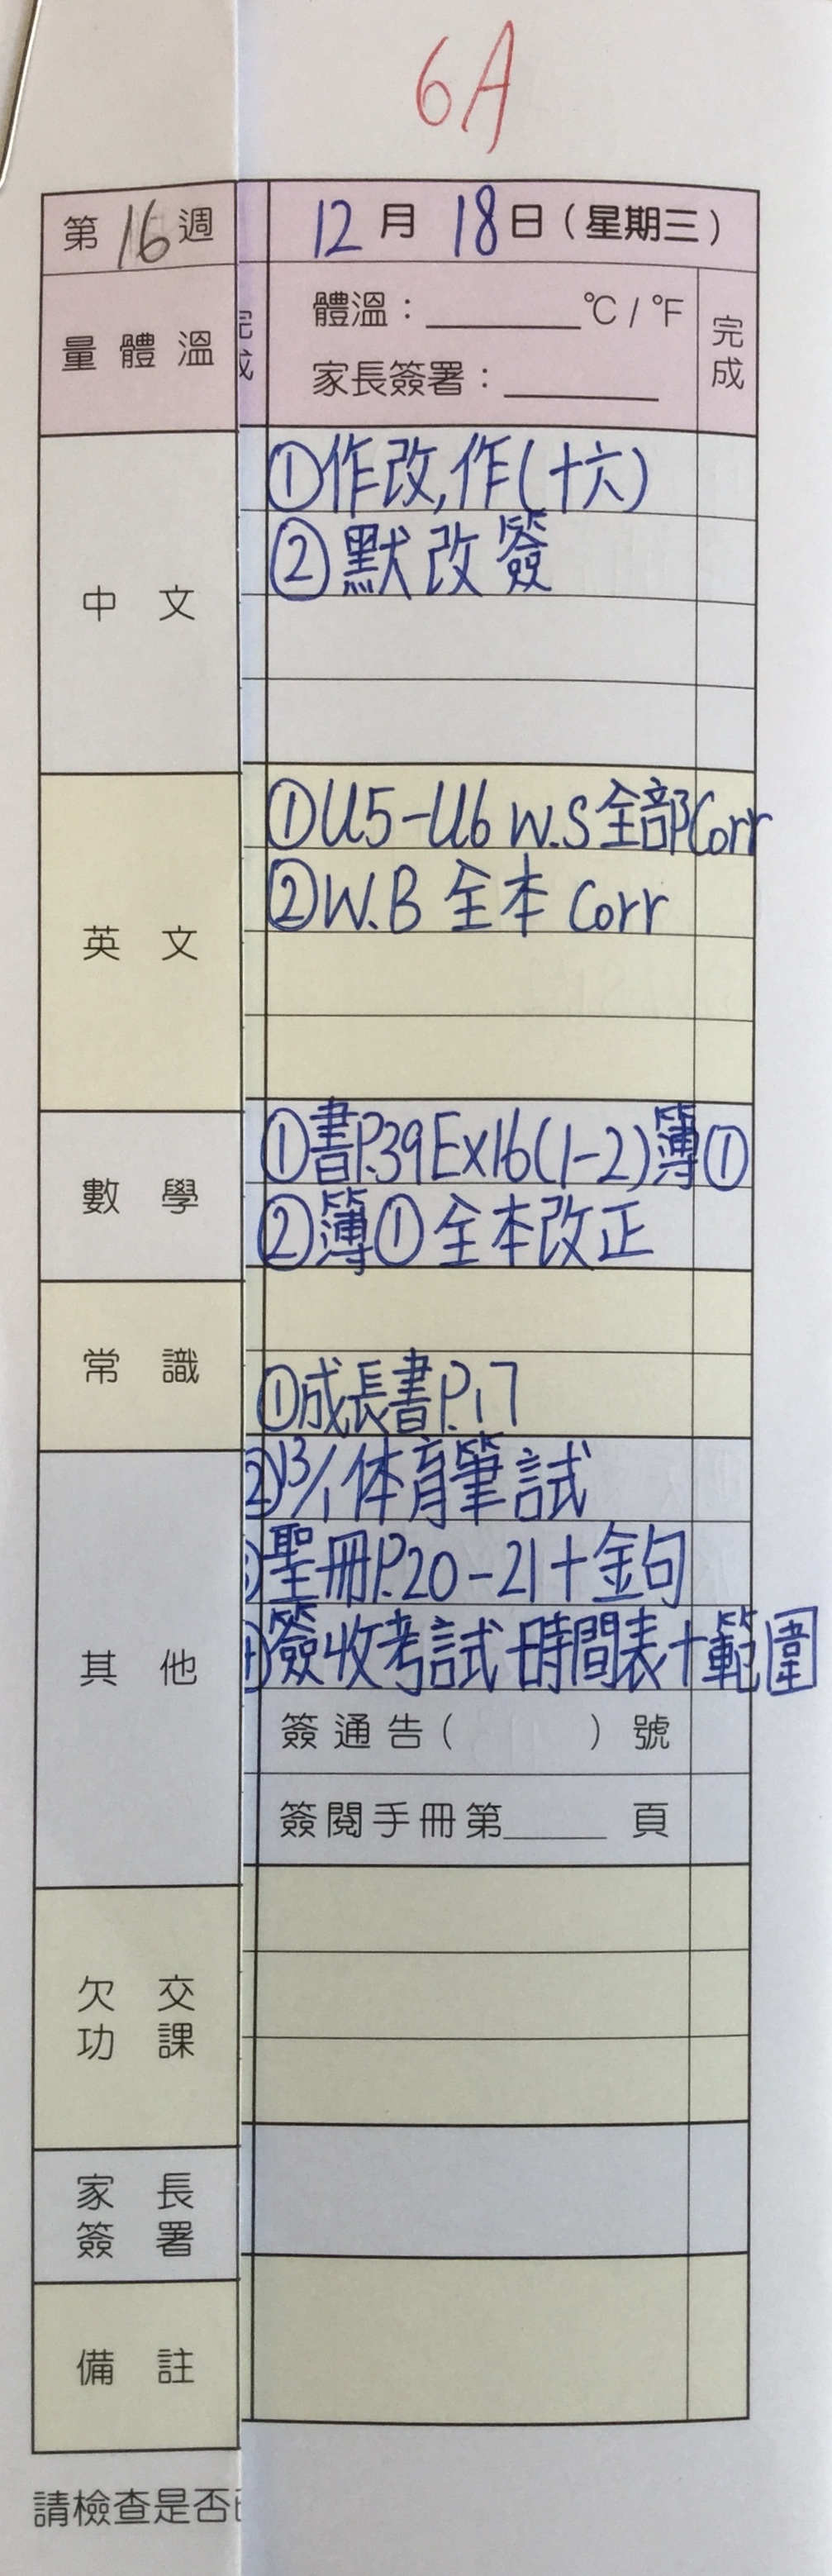 6A
第16週
12月18日(星期三)
量體溫
完成
體溫：______°C / °F
家長簽署：______
完成
中文
①作改,作(十六)
②默改簽
英文
①U5-U6 W.S全部Corr
②W.B 全本 Corr
數學
①書P.39Ex16(1-2)簿①
②簿①全本改正
常識
①成長書P.17
其他
②13/1体育筆試
③聖冊P.20-21+金句
④簽收考試時間表+範圍
簽通告(　　)號
簽閱手冊第____頁
欠交功課
家長簽署
備註
請檢查是否已